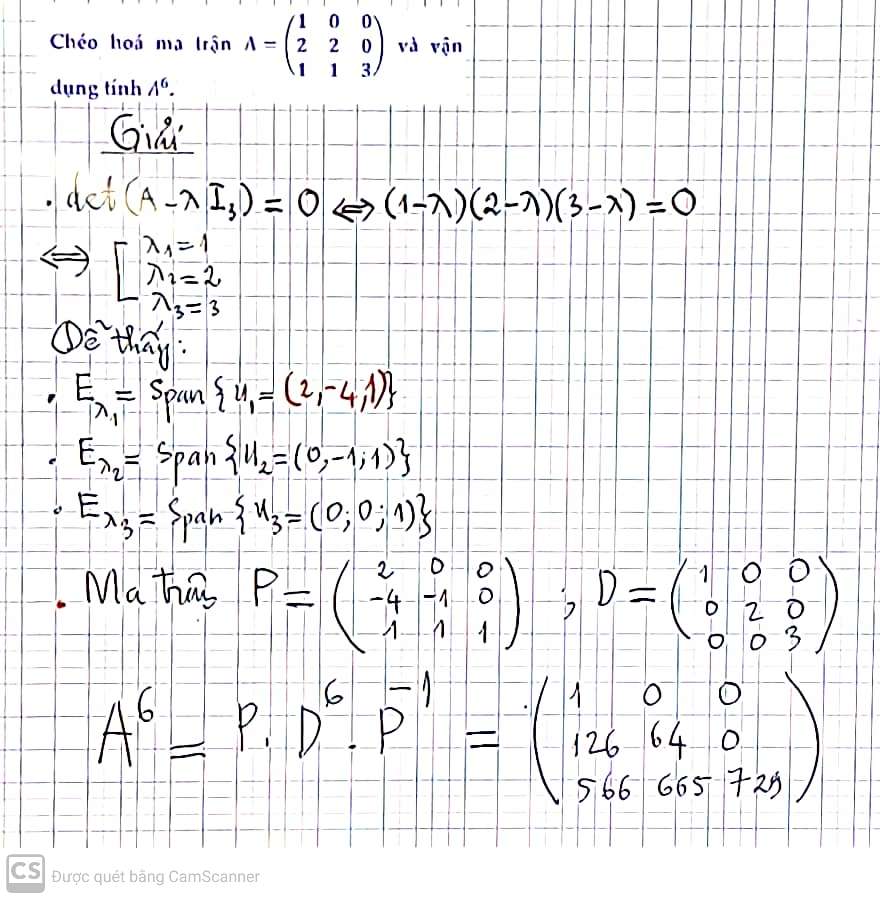 Chéo hoá ma trận A = (1 0 0
2 2 0
1 1 3) và vận
dụng tính A⁶.
Giải
. det(A-λI₃) = 0 ⇔ (1-λ)(2-λ)(3-λ) = 0
⇔ [ λ₁=1
λ₂=2
λ₃=3
Dễ thấy:
. E_λ₁ = Span {u₁ = (2,-4,1)}
. E_λ₂ = Span {u₂=(0,-1;1)}
. E_λ₃ = Span {u₃=(0;0;1)}
. Ma trận P = (2 0 0
-4 -1 0
1 1 1) ; D = (1 0 0
0 2 0
0 0 3)
A⁶ = P. D⁶. P⁻¹ = (1 0 0
126 64 0
566 665 729)
CS Được quét bằng CamScanner